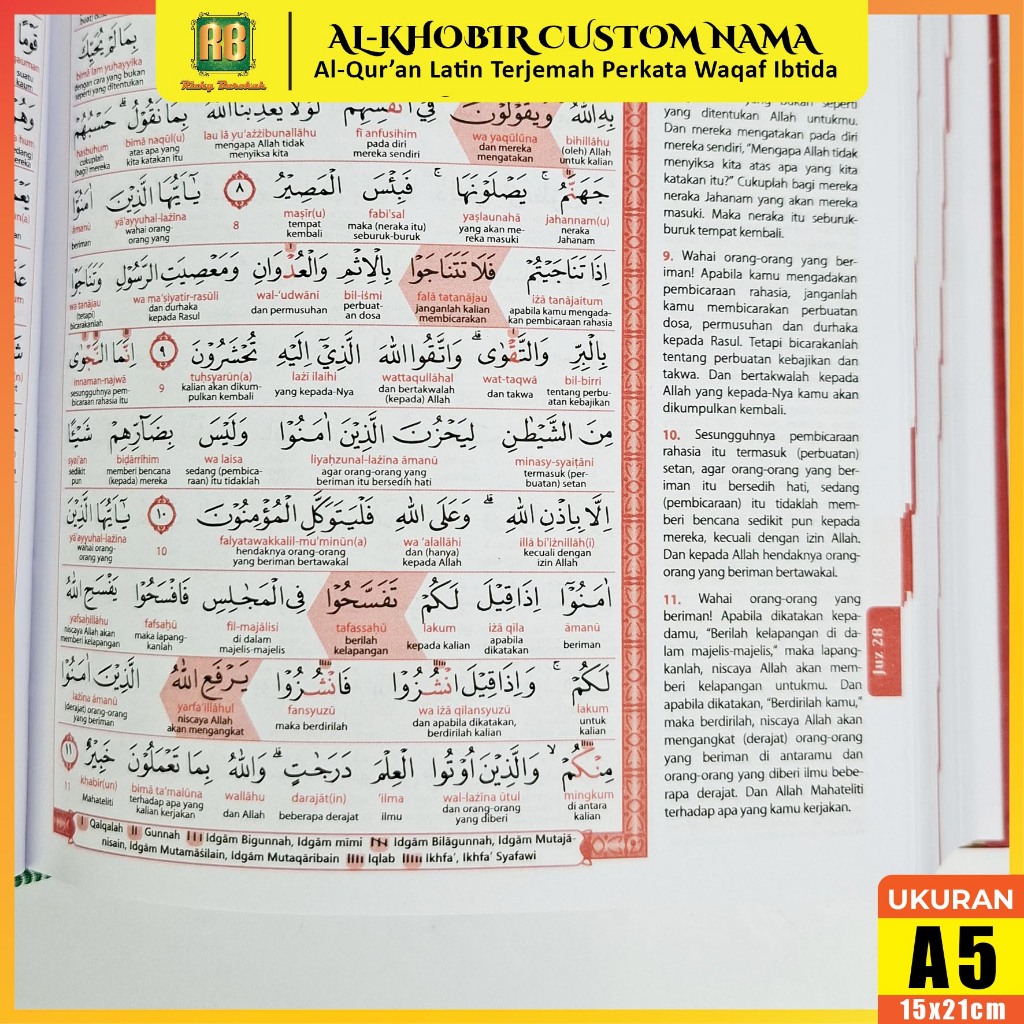 RB
Rizky Barokah
AL-KHOBIR CUSTOM NAMA
Al-Qur'an Latin Terjemah Perkata Waqaf Ibtida
بِمَا لَمْ يُحَيِّكَ
bimā lam yuḥayyika
dengan cara yang bukan
seperti yang ditentukan
بِهِ اللّٰهُ وَيَقُوْلُوْنَ فِيْٓ اَنْفُسِهِمْ لَوْلَا يُعَذِّبُنَا اللّٰهُ بِمَا نَقُوْلُۗ حَسْبُهُمْ
bihillāhu wa yaqūlūna fī anfusihim lau lā yu'ażżibunallāhu bimā naqūl(u) ḥasbuhum
(oleh) Allah untuk kalian dan mereka mengatakan pada diri mereka sendiri mengapa Allah tidak menyiksa kita atas apa yang kita katakan itu cukuplah (bagi) mereka
جَهَنَّمُۚ يَصْلَوْنَهَاۚ فَبِئْسَ الْمَصِيْرُ ٨ يٰٓاَيُّهَا الَّذِيْنَ اٰمَنُوْٓا
jahannam(u) yaṣlaunahā fabi'sal maṣīr(u) 8 yā'ayyuhal-lażīna āmanū
neraka Jahanam yang akan mereka masuki maka (neraka itu) seburuk-buruk tempat kembali wahai orang-orang yang beriman
اِذَا تَنَاجَيْتُمْ فَلَا تَتَنَاجَوْا بِالْاِثْمِ وَالْعُدْوَانِ وَمَعْصِيَتِ الرَّسُوْلِ وَتَنَاجَوْا
iżā tanājaitum falā tatanājau bil-iṡmi wal-'udwāni wa ma'ṣiyatir-rasūli wa tanājau
apabila kamu mengadakan pembicaraan rahasia janganlah kalian membicarakan perbuatan dosa dan permusuhan dan durhaka kepada Rasul (tetapi) bicarakanlah
بِالْبِرِّ وَالتَّقْوٰىۗ وَاتَّقُوا اللّٰهَ الَّذِيْٓ اِلَيْهِ تُحْشَرُوْنَ ٩ اِنَّمَا النَّجْوٰى
bil-birri wat-taqwā wattaqullāhal lażī ilaihi tuḥsyarūn(a) 9 innaman-najwā
tentang perbuatan kebajikan dan takwa dan bertakwalah (kepada) Allah yang kepada-Nya kalian akan dikumpulkan kembali sesungguhnya pembicaraan rahasia itu
مِنَ الشَّيْطٰنِ لِيَحْزُنَ الَّذِيْنَ اٰمَنُوْا وَلَيْسَ بِضَاۤرِّهِمْ شَيْـًٔا
minasy-syaiṭāni liyaḥzunal-lażīna āmanū wa laisa biḍārrihim syai'an
termasuk (perbuatan) setan agar orang-orang yang beriman itu bersedih hati sedang (pembicaraan) itu tidaklah memberi bencana (kepada) mereka sedikit pun
اِلَّا بِاِذْنِ اللّٰهِۗ وَعَلَى اللّٰهِ فَلْيَتَوَكَّلِ الْمُؤْمِنُوْنَ ١٠ يٰٓاَيُّهَا الَّذِيْنَ
illā bi'iżnillāh(i) wa 'alallāhi falyatawakkalil-mu'minūn(a) 10 yā'ayyuhal-lażīna
kecuali dengan izin Allah dan (hanya) kepada Allah hendaknya orang-orang yang beriman bertawakal wahai orang-orang yang
اٰمَنُوْٓا اِذَا قِيْلَ لَكُمْ تَفَسَّحُوْا فِى الْمَجٰلِسِ فَافْسَحُوْا يَفْسَحِ اللّٰهُ
āmanū iżā qīla lakum tafassaḥū fil-majālisi fafsaḥū yafsaḥillāhu
beriman apabila dikatakan kepada kalian berilah kelapangan di dalam majelis-majelis maka lapangkanlah niscaya Allah akan memberi kelapangan
لَكُمْۚ وَاِذَا قِيْلَ انْشُزُوْا فَانْشُزُوْا يَرْفَعِ اللّٰهُ الَّذِيْنَ اٰمَنُوْا
lakum wa iżā qīlansyuzū fansyuzū yarfa'illāhul lażīna āmanū
untuk kalian dan apabila dikatakan, berdirilah kalian maka berdirilah niscaya Allah akan mengangkat (derajat) orang-orang yang beriman
مِنْكُمْۙ وَالَّذِيْنَ اُوْتُوا الْعِلْمَ دَرَجٰتٍۗ وَاللّٰهُ بِمَا تَعْمَلُوْنَ خَبِيْرٌ ١١
mingkum wal-lażīna ūtul 'ilma darajāt(in) wallāhu bimā ta'malūna khabīr(un) 11
di antara kalian dan orang-orang yang diberi ilmu beberapa derajat dan Allah terhadap apa yang kalian kerjakan Mahateliti
Qalqalah Gunnah Idgām Bigunnah, Idgām mīmi Idgām Bilāgunnah, Idgām Mutajā-
nisain, Idgām Mutamāṡilain, Idgām Mutaqāribain Iqlab Ikhfa', Ikhfa' Syafawi
yang ditentukan Allah untukmu.
Dan mereka mengatakan pada diri
mereka sendiri, "Mengapa Allah tidak
menyiksa kita atas apa yang kita
katakan itu?" Cukuplah bagi mereka
neraka Jahanam yang akan mereka
masuki. Maka neraka itu seburuk-
buruk tempat kembali.
9. Wahai orang-orang yang ber-
iman! Apabila kamu mengadakan
pembicaraan rahasia, janganlah
kamu membicarakan perbuatan
dosa, permusuhan dan durhaka
kepada Rasul. Tetapi bicarakanlah
tentang perbuatan kebajikan dan
takwa. Dan bertakwalah kepada
Allah yang kepada-Nya kamu akan
dikumpulkan kembali.
10. Sesungguhnya pembicaraan
rahasia itu termasuk (perbuatan)
setan, agar orang-orang yang ber-
iman itu bersedih hati, sedang
(pembicaraan) itu tidaklah mem-
beri bencana sedikit pun kepada
mereka, kecuali dengan izin Allah.
Dan kepada Allah hendaknya orang-
orang yang beriman bertawakal.
11. Wahai orang-orang yang
beriman! Apabila dikatakan kepa-
damu, "Berilah kelapangan di da-
lam majelis-majelis," maka lapang-
kanlah, niscaya Allah akan mem-
beri kelapangan untukmu. Dan
apabila dikatakan, "Berdirilah kamu,"
maka berdirilah, niscaya Allah akan
mengangkat (derajat) orang-orang
yang beriman di antaramu dan
orang-orang yang diberi ilmu bebe-
rapa derajat. Dan Allah Mahateliti
terhadap apa yang kamu kerjakan.
Juz 28
UKURAN
A5
15x21cm